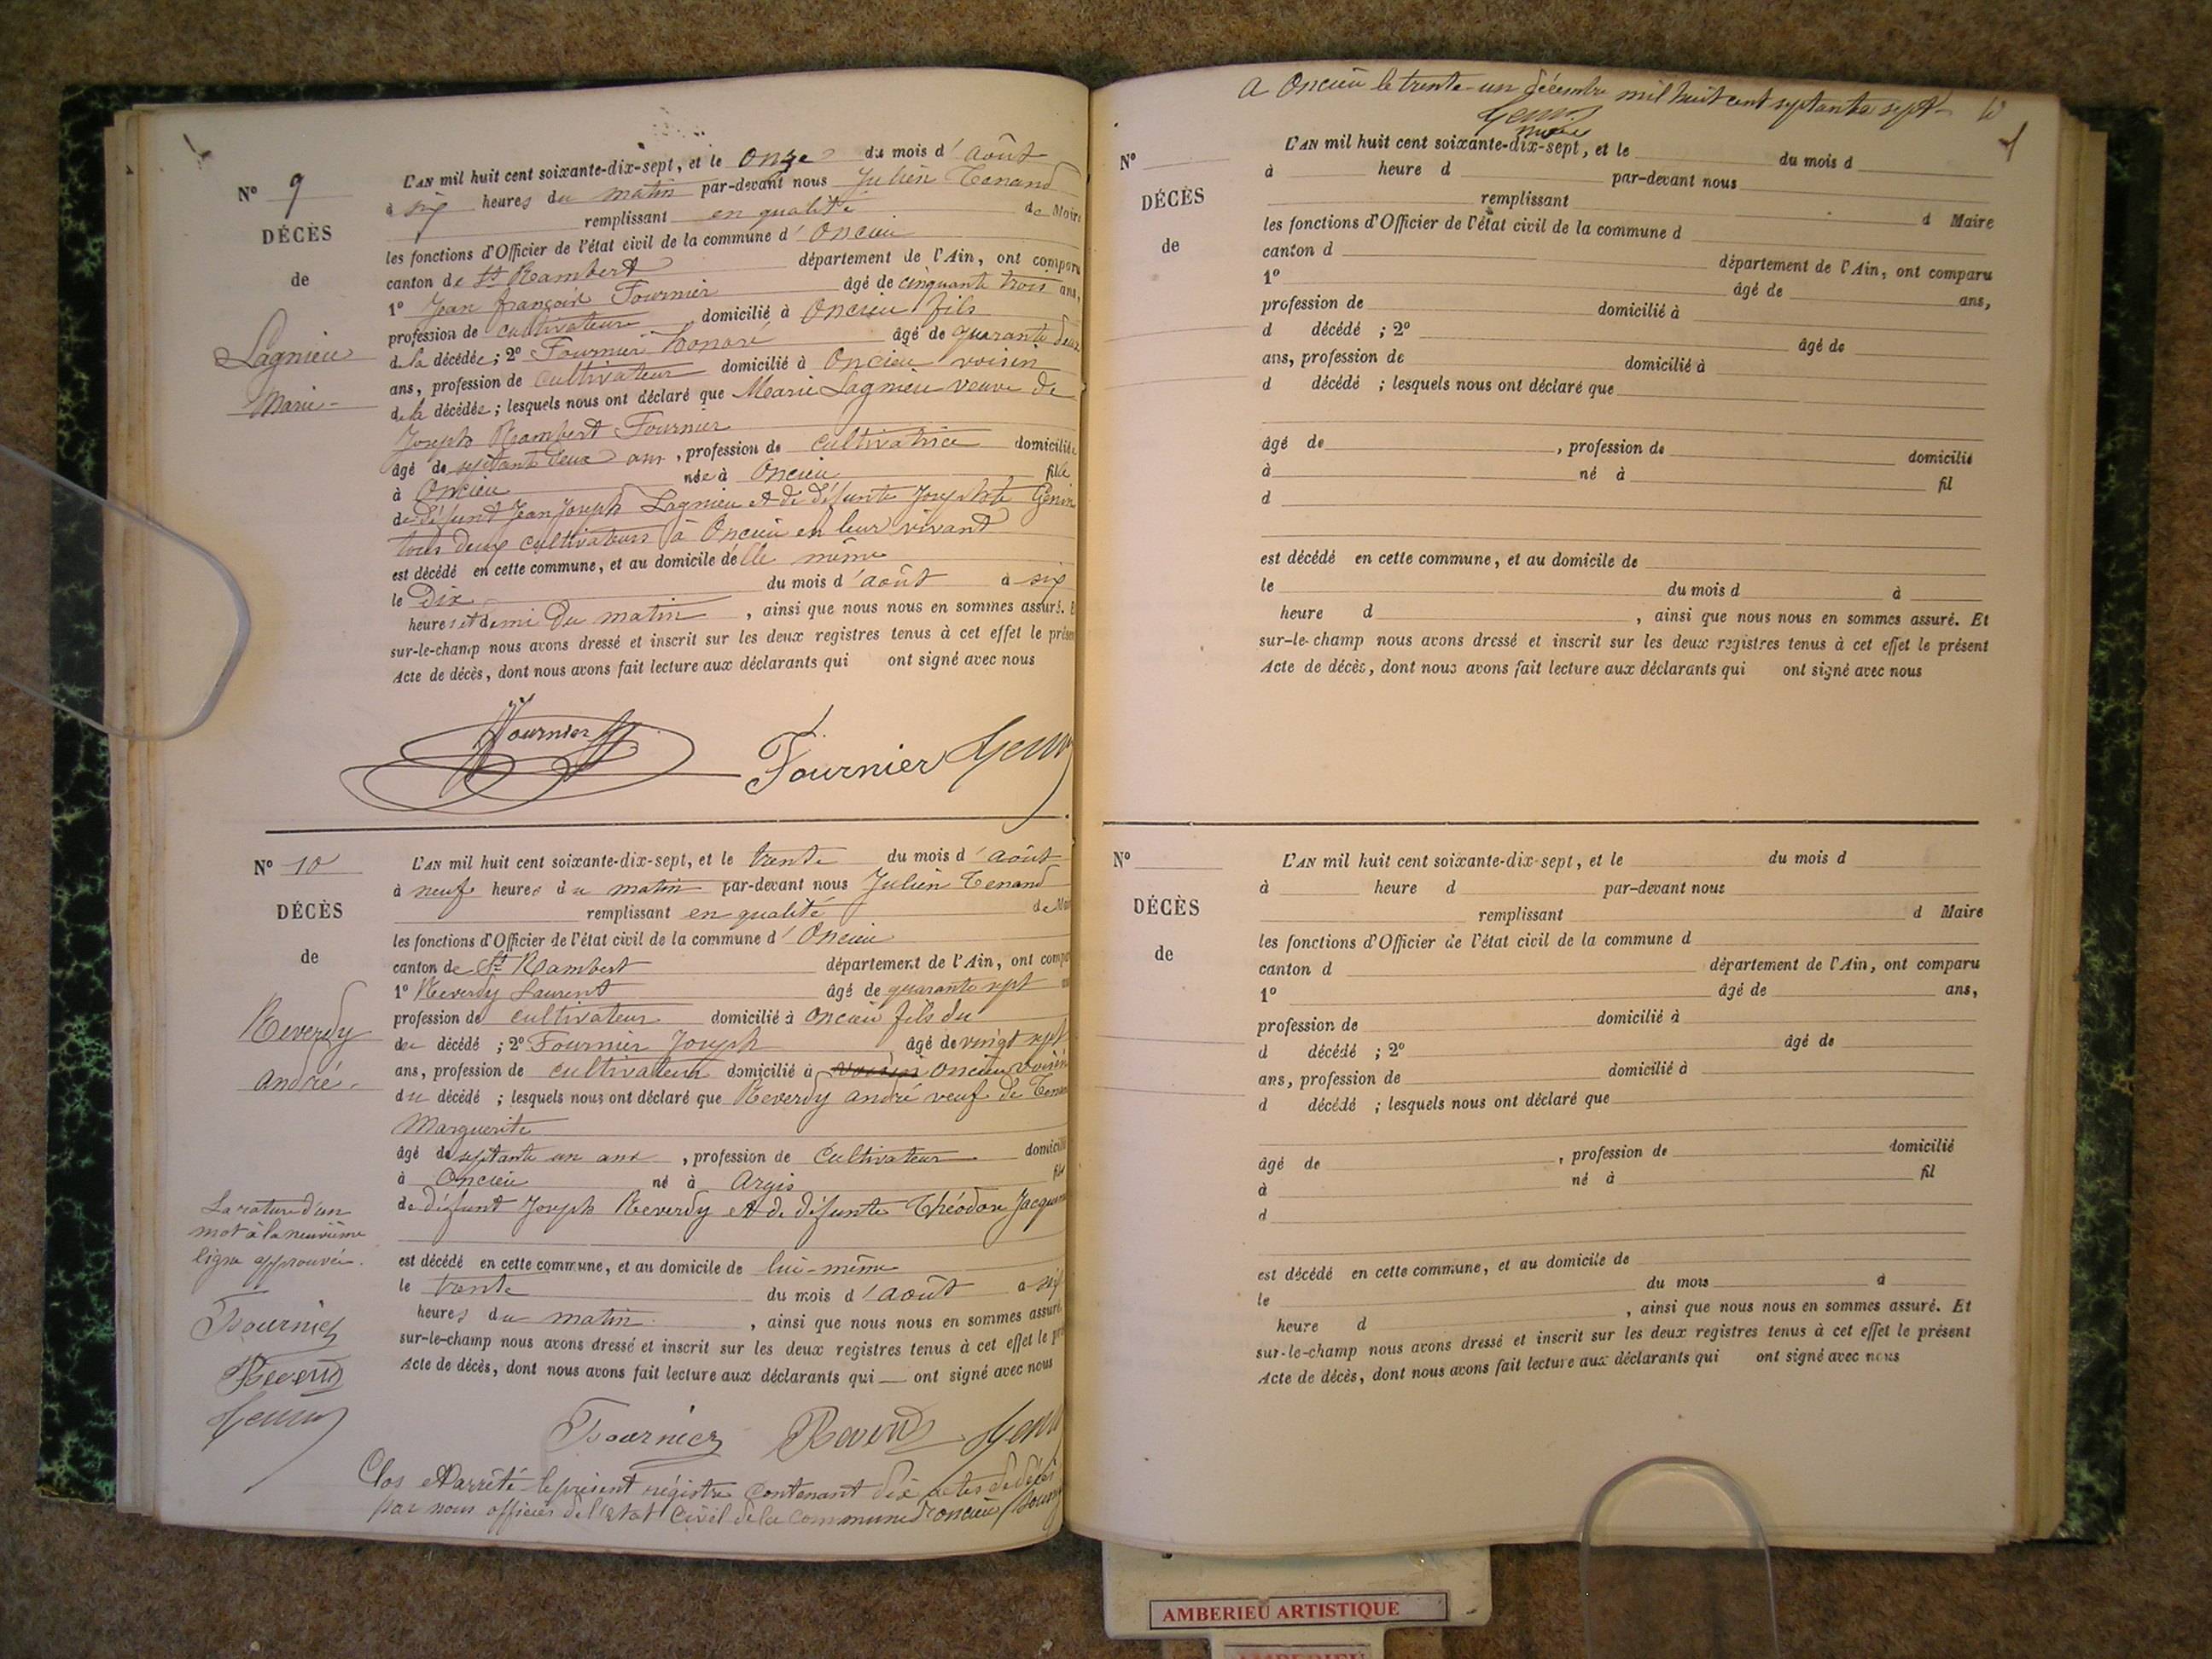 N° 9
DÉCÈS
de
Lagnieu
Marie
L'AN mil huit cent soixante-dix-sept, et le Onze du mois d'août
à six heures du matin par-devant nous Julien Tenand
remplissant en qualité de Maire
les fonctions d'Officier de l'état civil de la commune d'Oncieu
canton de St Rambert département de l'Ain, ont comparu
1° Jean françois Fournier âgé de cinquante trois ans,
profession de cultivateur domicilié à Oncieu fils
de la décédée; 2° Fournier honoré âgé de quarante deux
ans, profession de cultivateur domicilié à Oncieu voisin
de la décédée; lesquels nous ont déclaré que Marie Lagnieu veuve de
Joseph Rambert Fournier
âgé de septante deux ans, profession de cultivatrice domicilié
à Oncieu née à Oncieu fille
de défunt Jean Joseph Lagnieu et de défunte Josephte Genin
tous deux cultivateurs à Oncieu en leur vivant
est décédé en cette commune, et au domicile d'elle même
le Dix du mois d'août à six
heures et demi du matin, ainsi que nous nous en sommes assuré. E
sur-le-champ nous avons dressé et inscrit sur les deux registres tenus à cet effet le présen
Acte de décès, dont nous avons fait lecture aux déclarants qui ont signé avec nous
Fournier Fournier
N° 10
DÉCÈS
de
Reverdy
André
L'AN mil huit cent soixante-dix-sept, et le trente du mois d'août
à neuf heures du matin par-devant nous Julien Tenand
remplissant en qualité de Mai
les fonctions d'Officier de l'état civil de la commune d'Oncieu
canton de St Rambert département de l'Ain, ont compa
1° Reverdy Laurent âgé de quarante sept
profession de cultivateur domicilié à Oncieu fils du
du décédé; 2° Fournier Joseph âgé de vingt sept
ans, profession de cultivateur domicilié à voisin Oncieu voisin
du décédé; lesquels nous ont déclaré que Reverdy andré veuf de Tenan
Marguerite
âgé de septante un ans, profession de Cultivateur domicilié
à Oncieu né à Argis fils
de défunt Joseph Reverdy et de défunte Théodore
est décédé en cette commune, et au domicile de lui-même
le trente du mois d'août à six
heures du matin, ainsi que nous nous en sommes assuré.
sur-le-champ nous avons dressé et inscrit sur les deux registres tenus à cet effet le pré
Acte de décès, dont nous avons fait lecture aux déclarants qui — ont signé avec nous
La rature d'un
mot à la neuvième
ligne approuvée.
Fournier
Reverdy
Fournier Reverdy
Clos et arrêté le présent régistre contenant dix actes de décès
par nous officier de l'état Civil de la commune d'oncieu
a Oncieu le trente-un décembre mil huit cent septante sept
maire
N°
DÉCÈS
de
L'AN mil huit cent soixante-dix-sept, et le du mois d
à heure d par-devant nous
remplissant d Maire
les fonctions d'Officier de l'état civil de la commune d
canton d département de l'Ain, ont comparu
1° âgé de ans,
profession de domicilié à
d décédé ; 2° âgé de
ans, profession de domicilié à
d décédé ; lesquels nous ont déclaré que
âgé de , profession de domicilié
à né à fil
d
est décédé en cette commune, et au domicile de
le du mois d à
heure d , ainsi que nous nous en sommes assuré. Et
sur-le-champ nous avons dressé et inscrit sur les deux registres tenus à cet effet le présent
Acte de décès, dont nous avons fait lecture aux déclarants qui ont signé avec nous
N°
DÉCÈS
de
L'AN mil huit cent soixante-dix-sept, et le du mois d
à heure d par-devant nous
remplissant d Maire
les fonctions d'Officier de l'état civil de la commune d
canton d département de l'Ain, ont comparu
1° âgé de ans,
profession de domicilié à
d décédé ; 2° âgé de
ans, profession de domicilié à
d décédé ; lesquels nous ont déclaré que
âgé de , profession de domicilié
à né à fil
d
est décédé en cette commune, et au domicile de
le du mois à
heure d , ainsi que nous nous en sommes assuré. Et
sur-le-champ nous avons dressé et inscrit sur les deux registres tenus à cet effet le présent
Acte de décès, dont nous avons fait lecture aux déclarants qui ont signé avec nous
AMBERIEU ARTISTIQUE
AMBERIEU